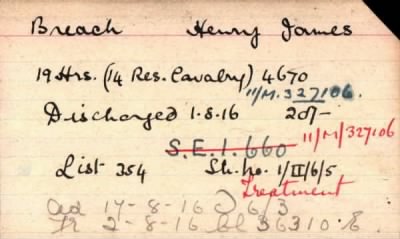 Breach Henry James
19 Hrs. (14 Res. Cavalry) 4670
11/M. 327106.
Discharged 1-5-16 20/-
11/M/327106
S.E.1.660
List 354 Sh. No. 1/II/6/5
Treatment
17-8-16
2-8-16 36310